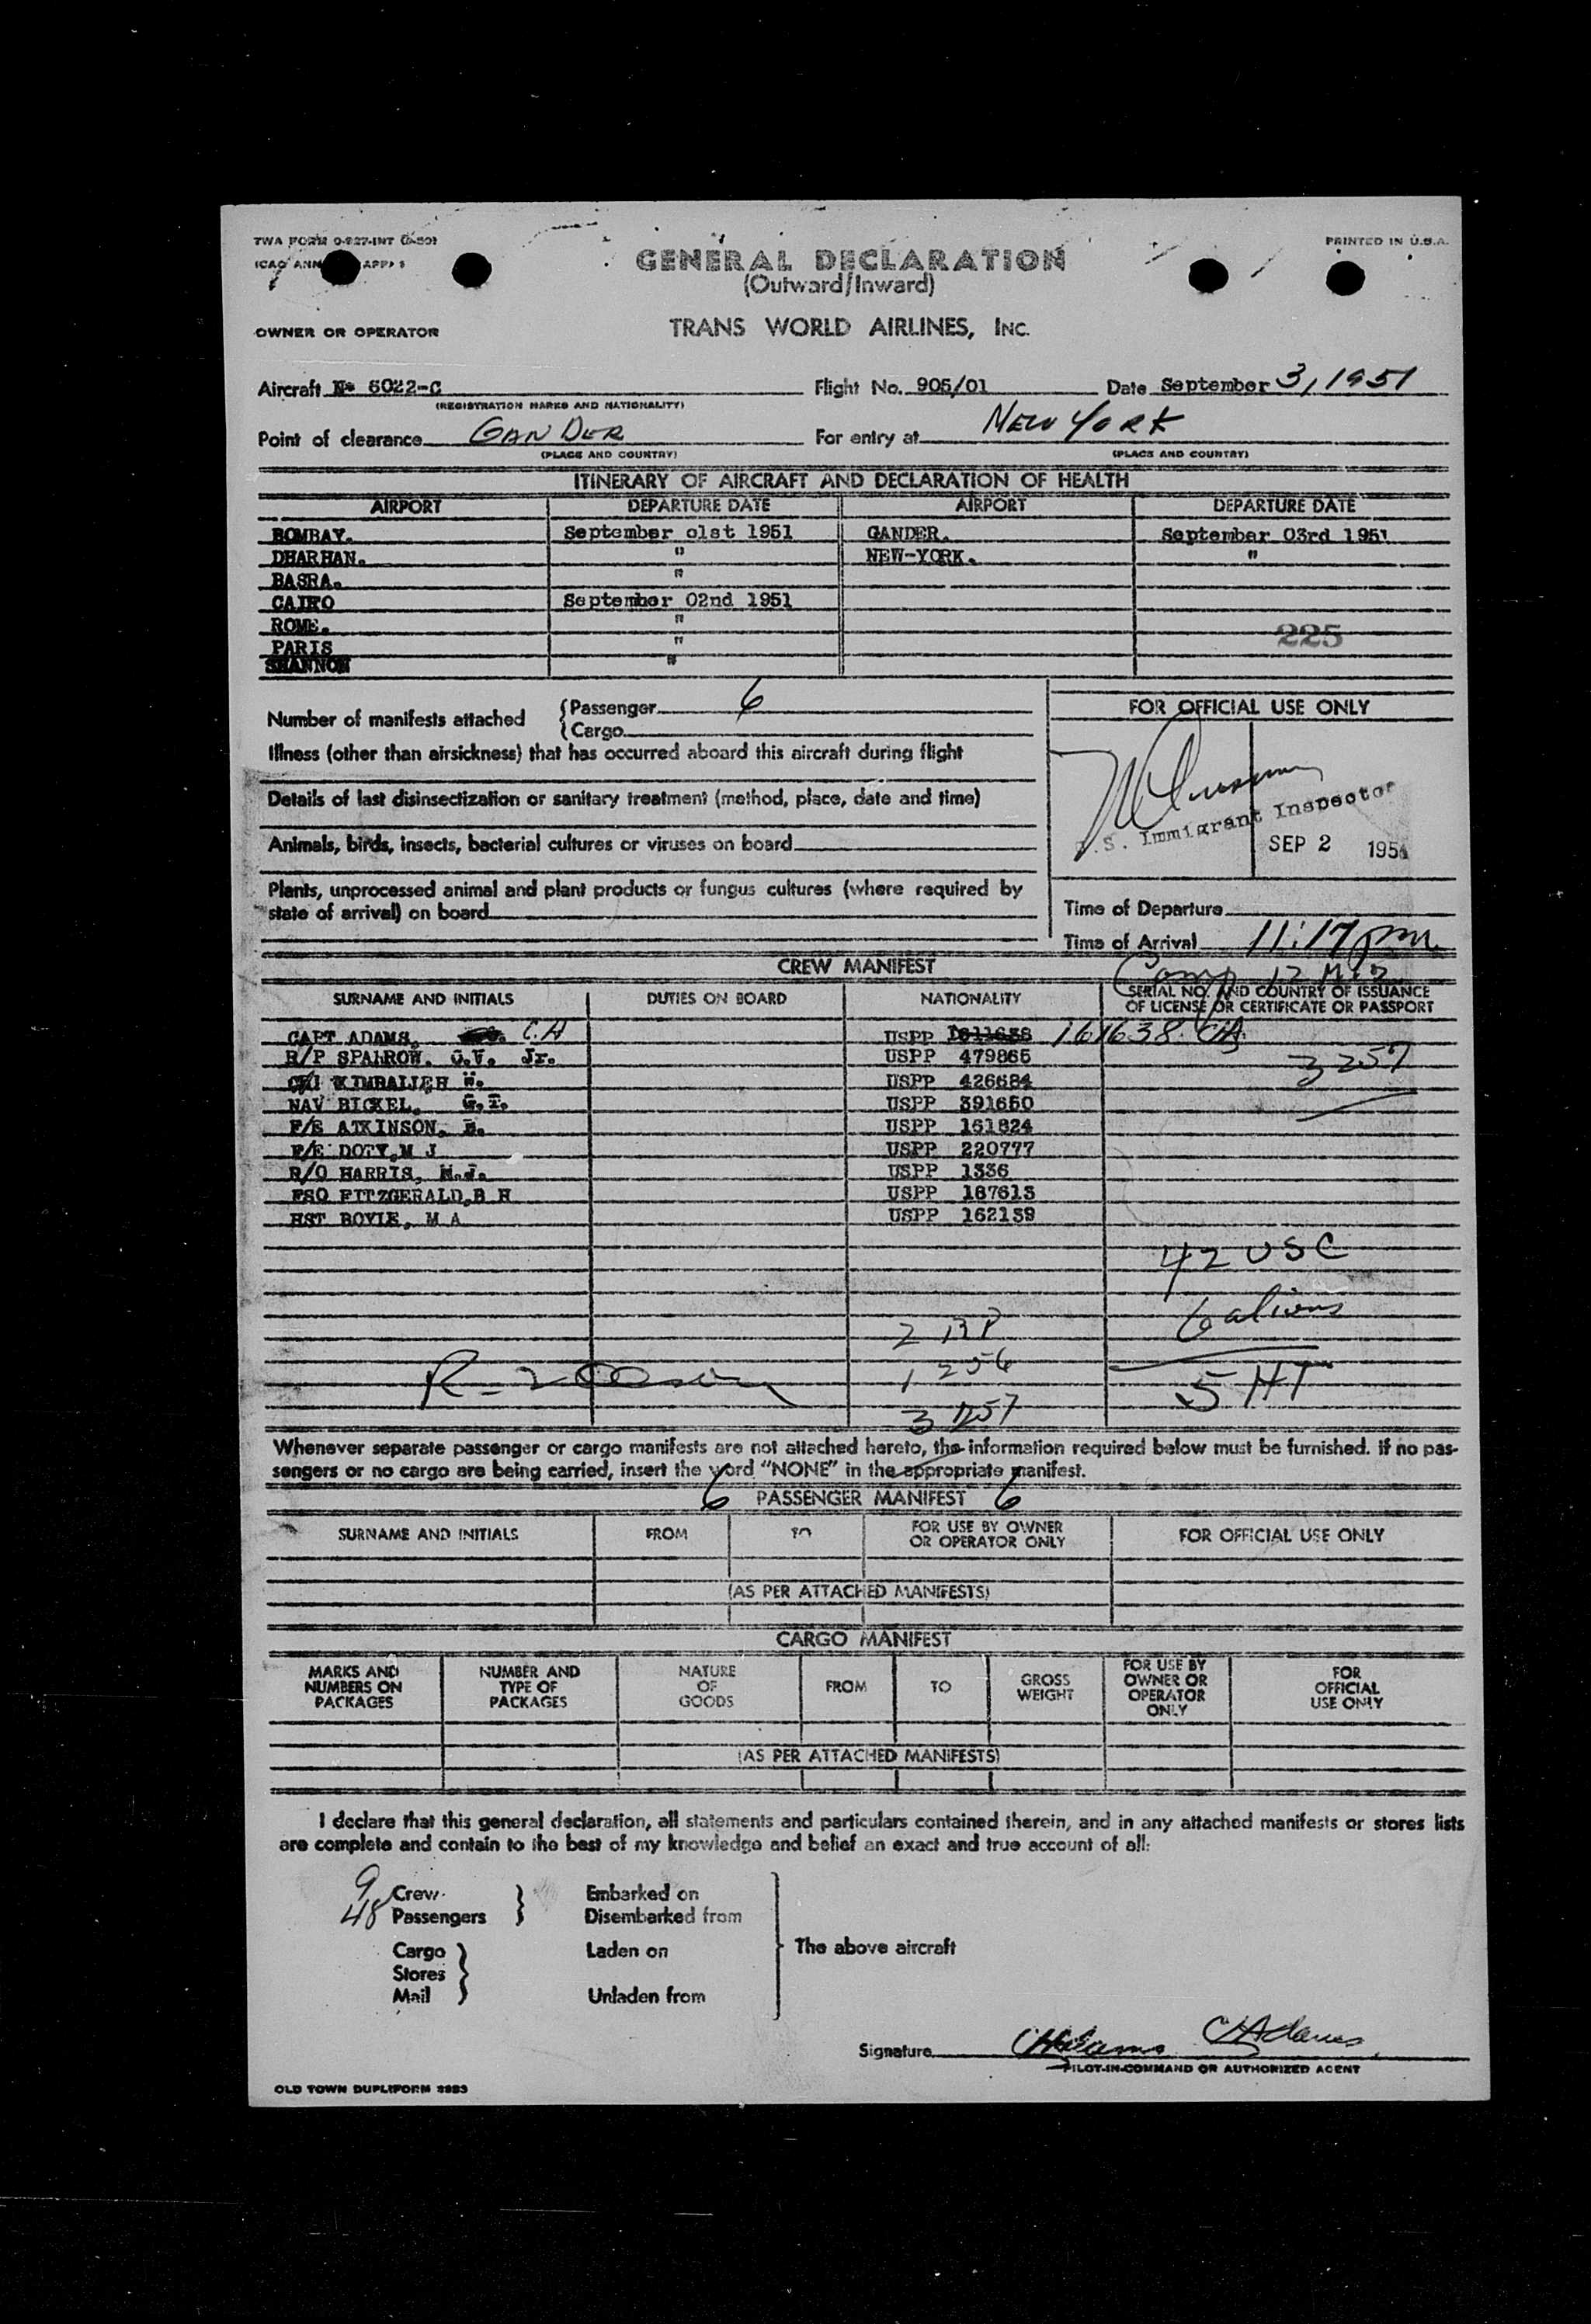 TWA FORM 0-927-INT
PRINTED IN U.S.A.
ICAO ANN APP
GENERAL DECLARATION
(Outward/Inward)
OWNER OR OPERATOR
TRANS WORLD AIRLINES, INC.
Aircraft No 6022-C Flight No. 905/01 Date September 3, 1951
(REGISTRATION MARKS AND NATIONALITY)
Point of clearance GANDER For entry at NEW YORK
(PLACE AND COUNTRY) (PLACE AND COUNTRY)
ITINERARY OF AIRCRAFT AND DECLARATION OF HEALTH
AIRPORT DEPARTURE DATE AIRPORT DEPARTURE DATE
BOMBAY. September 01st 1951 GANDER. September 03rd 1951
DHARHAN. " NEW-YORK. "
BASRA. "
CAIRO September 02nd 1951
ROME. "
PARIS " 225
SHANNON "
Number of manifests attached {Passenger 6
{Cargo
FOR OFFICIAL USE ONLY
Illness (other than airsickness) that has occurred aboard this aircraft during flight
Details of last disinsectization or sanitary treatment (method, place, date and time)
.S. Immigrant Inspector
SEP 2 195
Animals, birds, insects, bacterial cultures or viruses on board
Plants, unprocessed animal and plant products or fungus cultures (where required by
state of arrival) on board
Time of Departure
Time of Arrival 11:17 pm
CREW MANIFEST
Comp 12 Mid
SURNAME AND INITIALS DUTIES ON BOARD NATIONALITY SERIAL NO. AND COUNTRY OF ISSUANCE
OF LICENSE OR CERTIFICATE OR PASSPORT
CAPT ADAMS, C.H USPP 161638 CHA
R/P SPARROW. G.V. Jr. USPP 479865 3 257
KIMBALLEH W. USPP 426684
NAV BICKEL, G.T. USPP 391650
F/E ATKINSON, B. USPP 161824
F/E DOTY, M J USPP 220777
R/O HARRIS, M.J. USPP 1336
FSO FITZGERALD, B H USPP 187613
HST BOYLE, M A USPP 162139
42 USC
6 aliens
2 BP
1 256
5 HT
3 257
Whenever separate passenger or cargo manifests are not attached hereto, the information required below must be furnished. If no pas-
sengers or no cargo are being carried, insert the word "NONE" in the appropriate manifest.
6 PASSENGER MANIFEST 6
SURNAME AND INITIALS FROM TO FOR USE BY OWNER
OR OPERATOR ONLY FOR OFFICIAL USE ONLY
(AS PER ATTACHED MANIFESTS)
CARGO MANIFEST
MARKS AND
NUMBERS ON
PACKAGES
NUMBER AND
TYPE OF
PACKAGES
NATURE
OF
GOODS
FROM
TO
GROSS
WEIGHT
FOR USE BY
OWNER OR
OPERATOR
ONLY
FOR
OFFICIAL
USE ONLY
(AS PER ATTACHED MANIFESTS)
I declare that this general declaration, all statements and particulars contained therein, and in any attached manifests or stores lists
are complete and contain to the best of my knowledge and belief an exact and true account of all:
9 Crew } Embarked on
48 Passengers } Disembarked from
Cargo } Laden on The above aircraft
Stores }
Mail } Unladen from
Signature CHAdams CHAdams
PILOT-IN-COMMAND OR AUTHORIZED AGENT
OLD TOWN DUPLIFORM